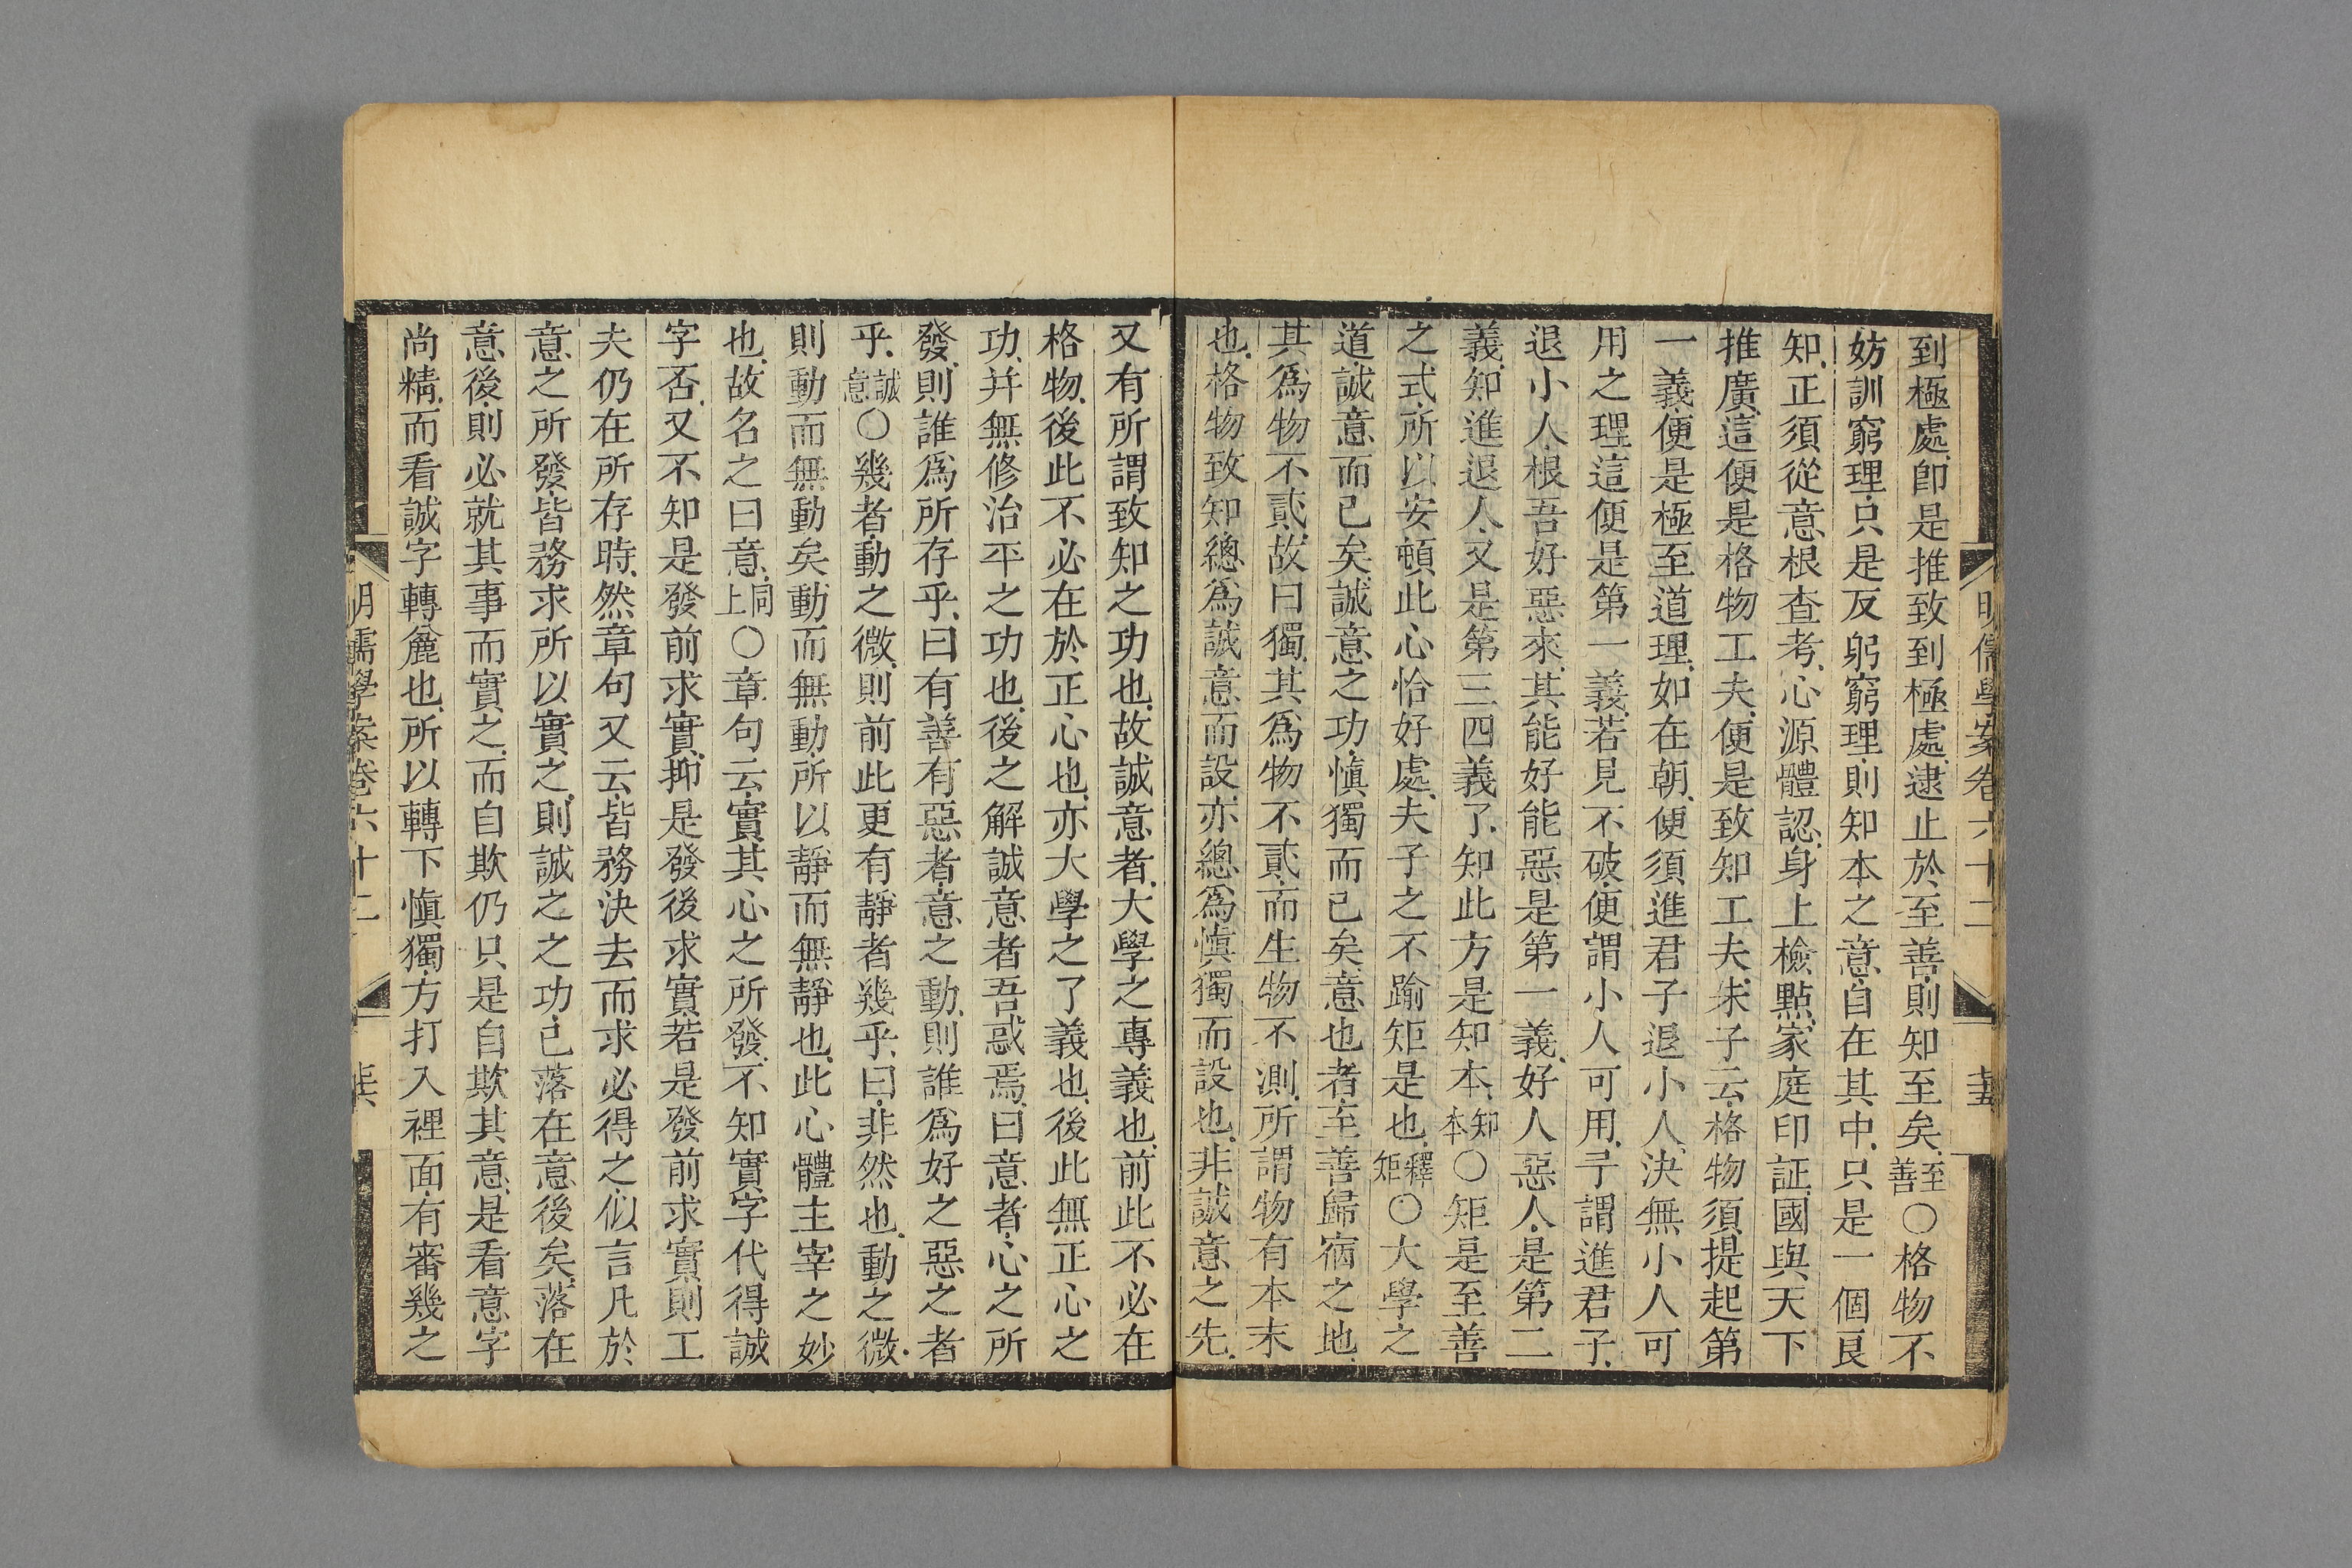 明儒學案卷六十二
十五
到極處卽是推致到極處逮止於至善則知至矣至善○格物不
妨訓窮理只是反躬窮理則知本之意自在其中只是一個良
知正須從意根查考心源體認身上檢點家庭印証國與天下
推廣這便是格物工夫便是致知工夫朱子云格物須提起第
一義便是極至道理如在朝便須進君子退小人決無小人可
用之理這便是第一義若見不破便謂小人可用予謂進君子
退小人根吾好惡來其能好能惡是第一義好人惡人是第二
義知進退人又是第三四義了知此方是知本知本○矩是至善
之式所以安頓此心恰好處夫子之不踰矩是也釋矩○大學之
道誠意而已矣誠意之功愼獨而已矣意也者至善歸宿之地
其爲物不貳故曰獨其爲物不貳而生物不測所謂物有本末
也格物致知總爲誠意而設亦總爲愼獨而設也非誠意之先
又有所謂致知之功也故誠意者大學之專義也前此不必在
格物後此不必在於正心也亦大學之了義也後此無正心之
功并無修治平之功也後之解誠意者吾惑焉曰意者心之所
發則誰爲所存乎曰有善有惡者意之動則誰爲好之惡之者
乎誠意○幾者動之微則前此更有靜者幾乎曰非然也動之微
則動而無動矣動而無動所以靜而無靜也此心體主宰之妙
也故名之曰意同上○章句云實其心之所發不知實字代得誠
字否又不知是發前求實抑是發後求實若是發前求實則工
夫仍在所存時然章句又云皆務決去而求必得之似言凡於
意之所發皆務求所以實之則誠之之功已落在意後矣落在
意後則必就其事而實之而自欺仍只是自欺其意是看意字
尚精而看誠字轉麄也所以轉下愼獨方打入裡面有審幾之
明儒學案卷六十二